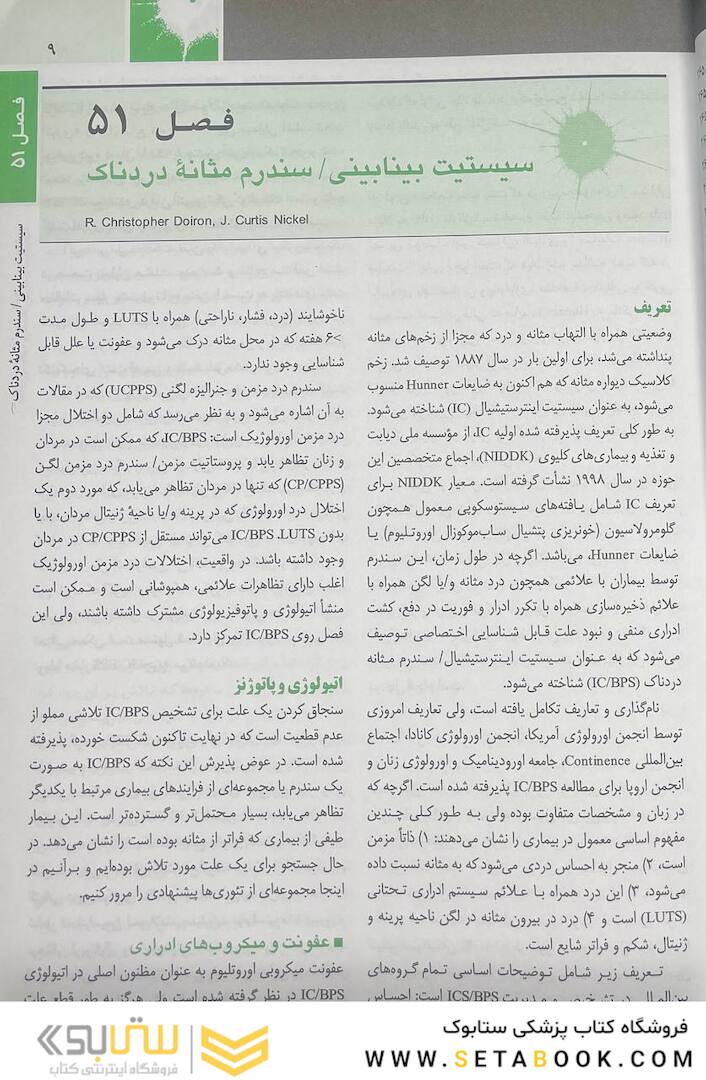 ۹
فصل ۵۱
سیستیت بینابینی / سندرم مثانهٔ دردناک
فصل ۵۱
سیستیت بینابینی / سندرم مثانهٔ دردناک
R. Christopher Doiron, J. Curtis Nickel
تعریف
وضعیتی همراه با التهاب مثانه و درد که مجزا از زخم‌های مثانه
پنداشته می‌شد، برای اولین بار در سال ۱۸۸۷ توصیف شد. زخم
کلاسیک دیواره مثانه که هم اکنون به ضایعات Hunner منسوب
می‌شود، به عنوان سیستیت اینترستیشیال (IC) شناخته می‌شود.
به طور کلی تعریف پذیرفته شده اولیه IC، از مؤسسه ملی دیابت
و تغذیه و بیماری‌های کلیوی (NIDDK)، اجماع متخصصین این
حوزه در سال ۱۹۹۸ نشأت گرفته است. معیار NIDDK برای
تعریف IC شامل یافته‌های سیستوسکوپی معمول همچون
گلومرولاسیون (خونریزی پتشیال ساب‌موکوزال اوروتلیوم) یا
ضایعات Hunner، می‌باشد. اگرچه در طول زمان، این سندرم
توسط بیماران با علائمی همچون درد مثانه و/یا لگن همراه با
علائم ذخیره‌سازی همراه با تکرر ادرار و فوریت در دفع، کشت
ادراری منفی و نبود علت قابل شناسایی اختصاصی توصیف
می‌شود که به عنوان سیستیت اینترستیشیال/ سندرم مثانه
دردناک (IC/BPS) شناخته می‌شود.
نام‌گذاری و تعاریف تکامل یافته است، ولی تعاریف امروزی
توسط انجمن اورولوژی آمریکا، انجمن اورولوژی کانادا، اجتماع
بین‌المللی Continence، جامعه اورودینامیک و اورولوژی زنان و
انجمن اروپا برای مطالعه IC/BPS پذیرفته شده است. اگرچه که
در زبان و مشخصات متفاوت بوده ولی به طور کلی چندین
مفهوم اساسی معمول در بیماری را نشان می‌دهند: ۱) ذاتاً مزمن
است، ۲) منجر به احساس دردی می‌شود که به مثانه نسبت داده
می‌شود، ۳) این درد همراه با علائم سیستم ادراری تحتانی
(LUTS) است و ۴) درد در بیرون مثانه در لگن ناحیه پرینه و
ژنیتال، شکم و فراتر شایع است.
تعریف زیر شامل توضیحات اساسی تمام گروه‌های
بین‌المللی در تشخیص و مدیریت ICS/BPS است: احساس
ناخوشایند (درد، فشار، ناراحتی) همراه با LUTS و طول مدت
>۶ هفته که در محل مثانه درک می‌شود و عفونت یا علل قابل
شناسایی وجود ندارد.
سندرم درد مزمن و جنرالیزه لگنی (UCPPS) که در مقالات
به آن اشاره می‌شود و به نظر می‌رسد که شامل دو اختلال مجزا
درد مزمن اورولوژیک است: IC/BPS، که ممکن است در مردان
و زنان تظاهر یابد و پروستاتیت مزمن/ سندرم درد مزمن لگن
(CP/CPPS) که تنها در مردان تظاهر می‌یابد، که مورد دوم یک
اختلال درد اورولوژی که در پرینه و/یا ناحیهٔ ژنیتال مردان، با یا
بدون LUTS. IC/BPS می‌تواند مستقل از CP/CPPS در مردان
وجود داشته باشد. در واقعیت، اختلالات درد مزمن اورولوژیک
اغلب دارای تظاهرات علائمی، همپوشانی است و ممکن است
منشأ اتیولوژی و پاتوفیزیولوژی مشترک داشته باشند، ولی این
فصل روی IC/BPS تمرکز دارد.
اتیولوژی و پاتوژنز
سنجاق کردن یک علت برای تشخیص IC/BPS تلاشی مملو از
عدم قطعیت است که در نهایت تاکنون شکست خورده، پذیرفته
شده است. در عوض پذیرش این نکته که IC/BPS به صورت
یک سندرم یا مجموعه‌ای از فرایندهای بیماری مرتبط با یکدیگر
تظاهر می‌یابد، بسیار محتمل‌تر و گسترده‌تر است. این بیمار
طیفی از بیماری که فراتر از مثانه بوده است را نشان می‌دهد. در
حال جستجو برای یک علت مورد تلاش بوده‌ایم و برآنیم در
اینجا مجموعه‌ای از تئوری‌ها پیشنهادی را مرور کنیم.
■ عفونت و میکروب‌های ادراری
عفونت میکروبی اوروتلیوم به عنوان مظنون اصلی در اتیولوژی
IC/BPS در نظر گرفته شده است ولی هرگز به طور قطع علت
فروشگاه کتاب پزشکی ستابوک
WWW.SETABOOK.COM
ستابوک
فروشگاه اینترنتی کتاب